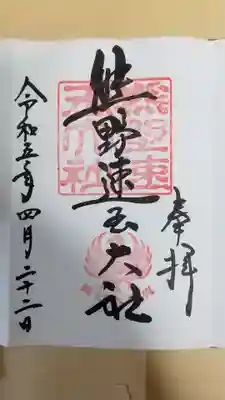 奉拝
熊野速玉大社
令和五年四月二十二日